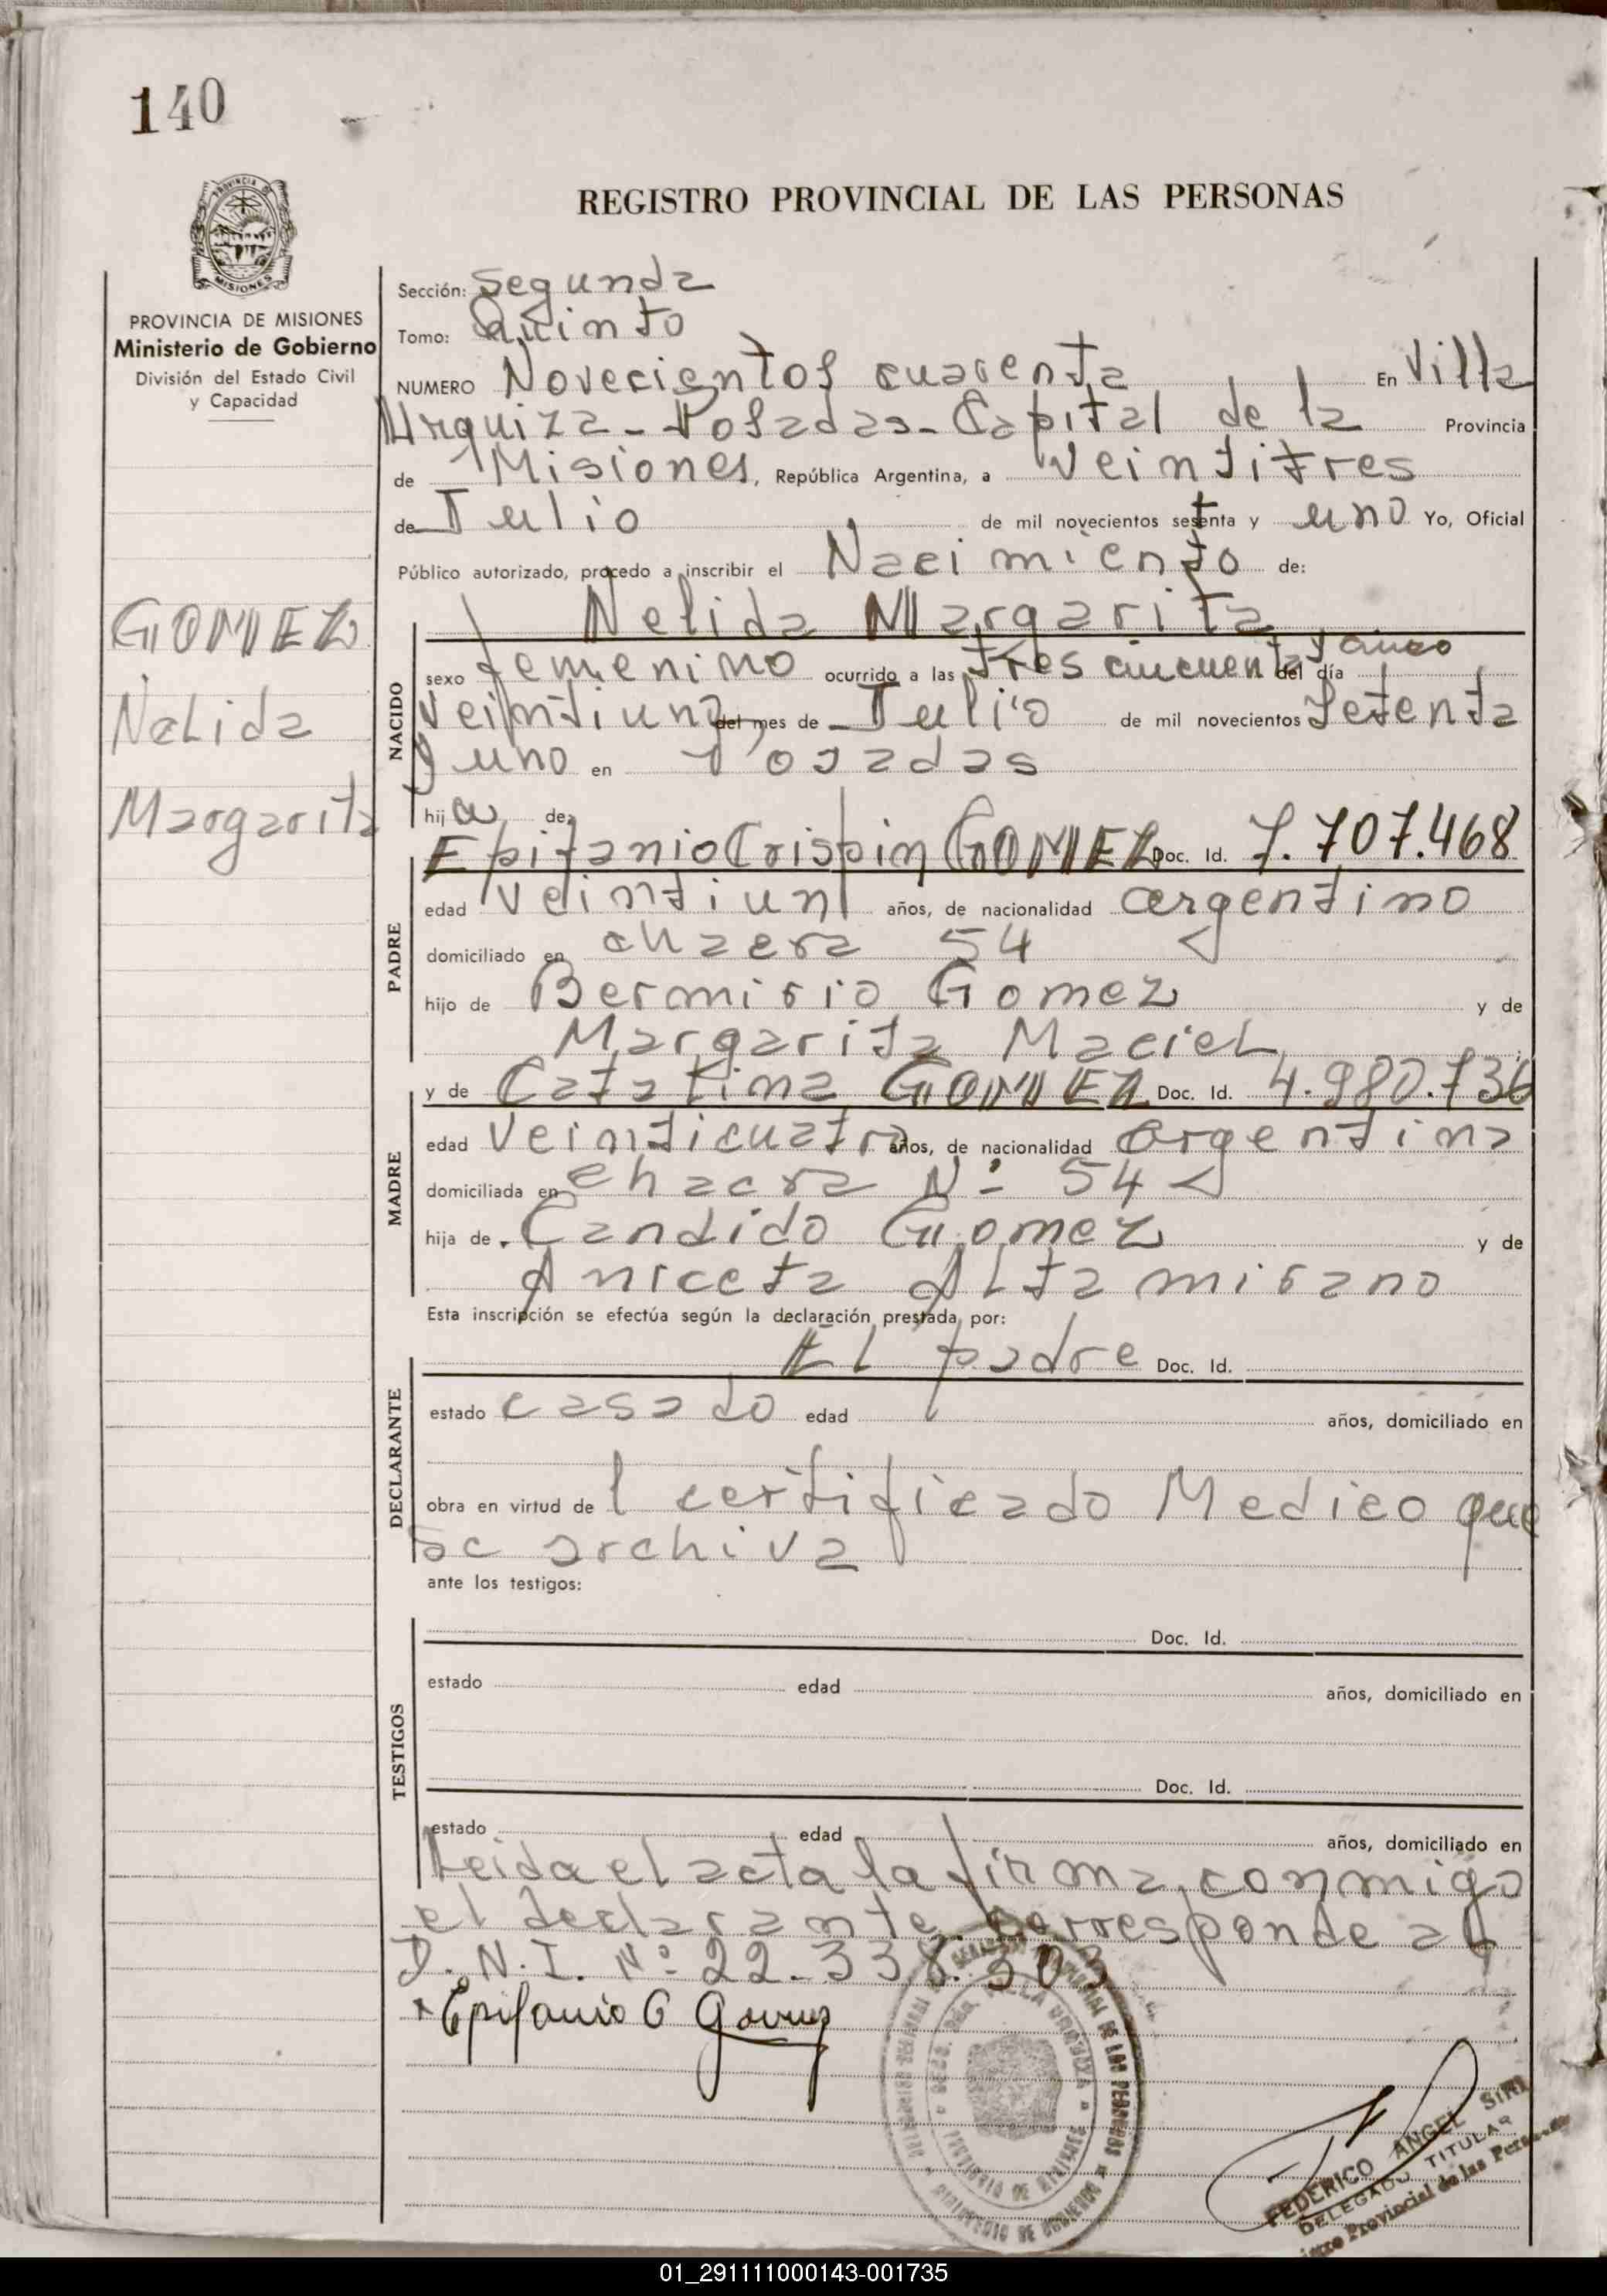 140
REGISTRO PROVINCIAL DE LAS PERSONAS
PROVINCIA DE MISIONES
Ministerio de Gobierno
División del Estado Civil
y Capacidad
GOMEZ
Nelida
Margarita
Sección: Segunda
Tomo: Quinto
NUMERO Novecientos cuarenta En Villa
Urquiza - Posadas - Capital de la Provincia
de Misiones, República Argentina, a Veintitres
de Julio de mil novecientos setenta y uno Yo, Oficial
Público autorizado, procedo a inscribir el Nacimiento de:
Nelida Margarita
NACIDO
sexo femenino ocurrido a las tres cincuenta y cinco del día
veintiuno del mes de Julio de mil novecientos Setenta
y uno en Posadas
hija de
PADRE
Epifanio Crispin GOMEZ Doc. Id. 7.707.468
edad Veintiun años, de nacionalidad argentino
domiciliado en chacra 54
hijo de Bermirio Gomez y de
Margarita Maciel
MADRE
y de Catalina GOMEZ Doc. Id. 4.980.736
edad Veinticuatro años, de nacionalidad argentina
domiciliada en chacra Nº 54
hija de Candido Gomez y de
Aniceta Altamirano
Esta inscripción se efectúa según la declaración prestada por:
DECLARANTE
El padre Doc. Id.
estado casado edad años, domiciliado en
obra en virtud del certificado Medico que
se archiva
ante los testigos:
TESTIGOS
Doc. Id.
estado edad años, domiciliado en
Doc. Id.
estado edad años, domiciliado en
Leida el acta la firma conmigo
el declarante. Corresponde al
D.N.I. Nº 22.338.303
Epifanio C Gomez
FEDERICO ANGEL SIRI
DELEGADO TITULAR
Provincial de las Personas
01_291111000143-001735